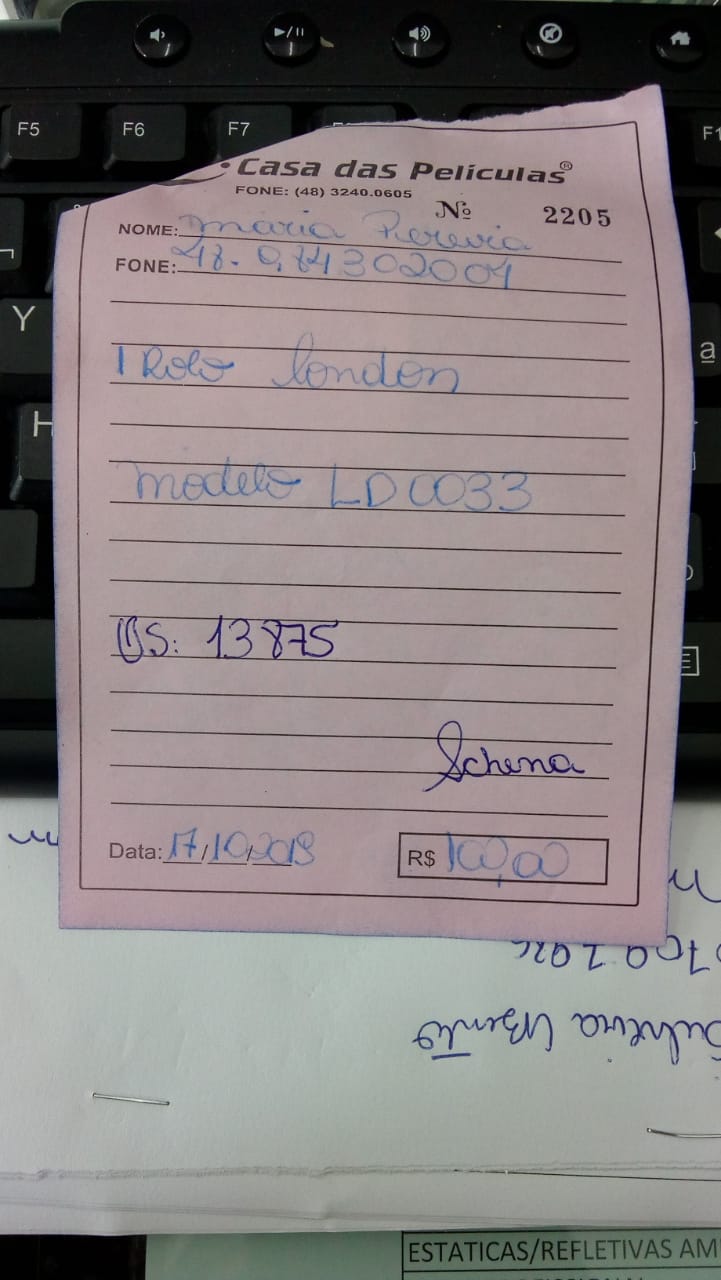 F5 F6 F7 F1
Casa das Películas®
FONE: (48) 3240.0605
Nº 2205
NOME: Maria Pereira
FONE: 48. 9.84302001
1 Rolo london
modelo LD0033
OS: 13875
Schena
Data: 17/10/2018 R$ 100,00
Y
H
ª
ESTATICAS/REFLETIVAS AM